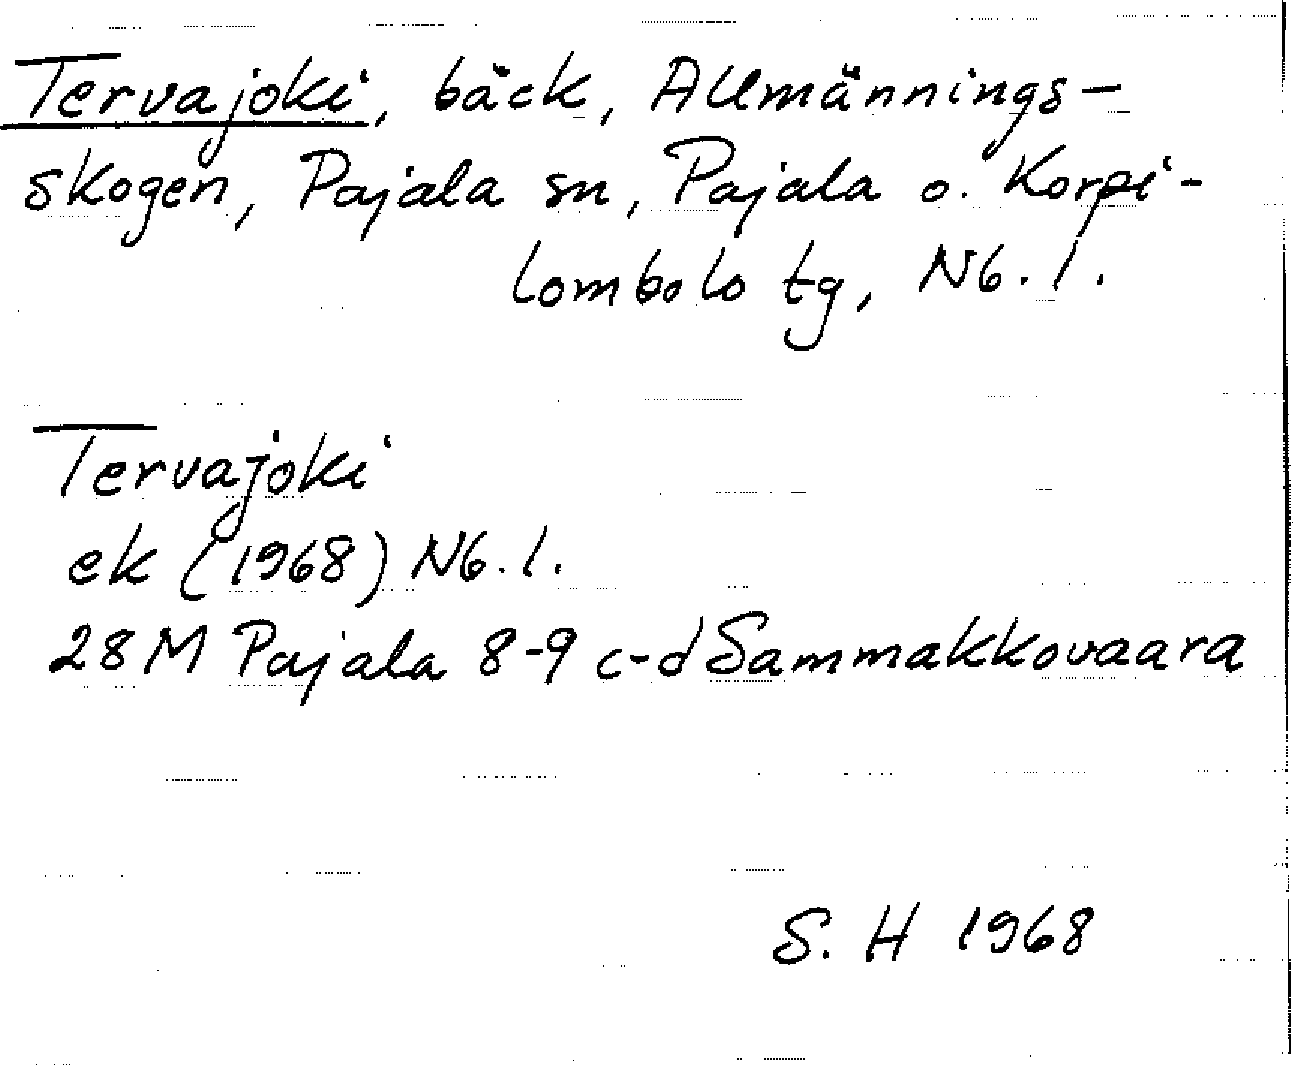 Tervajoki, bäck, Allmännings-
skogen, Pajala sn, Pajala o. Korpi-
lombolo tg, Nb. l.
Tervajoki
ek (1968) Nb. l.
28M Pajala 8-9 c-d Sammakkovaara
S. H 1968